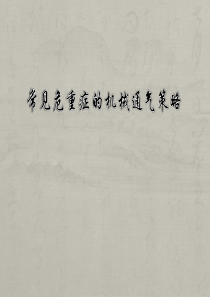 常见危重症的机械通气策略